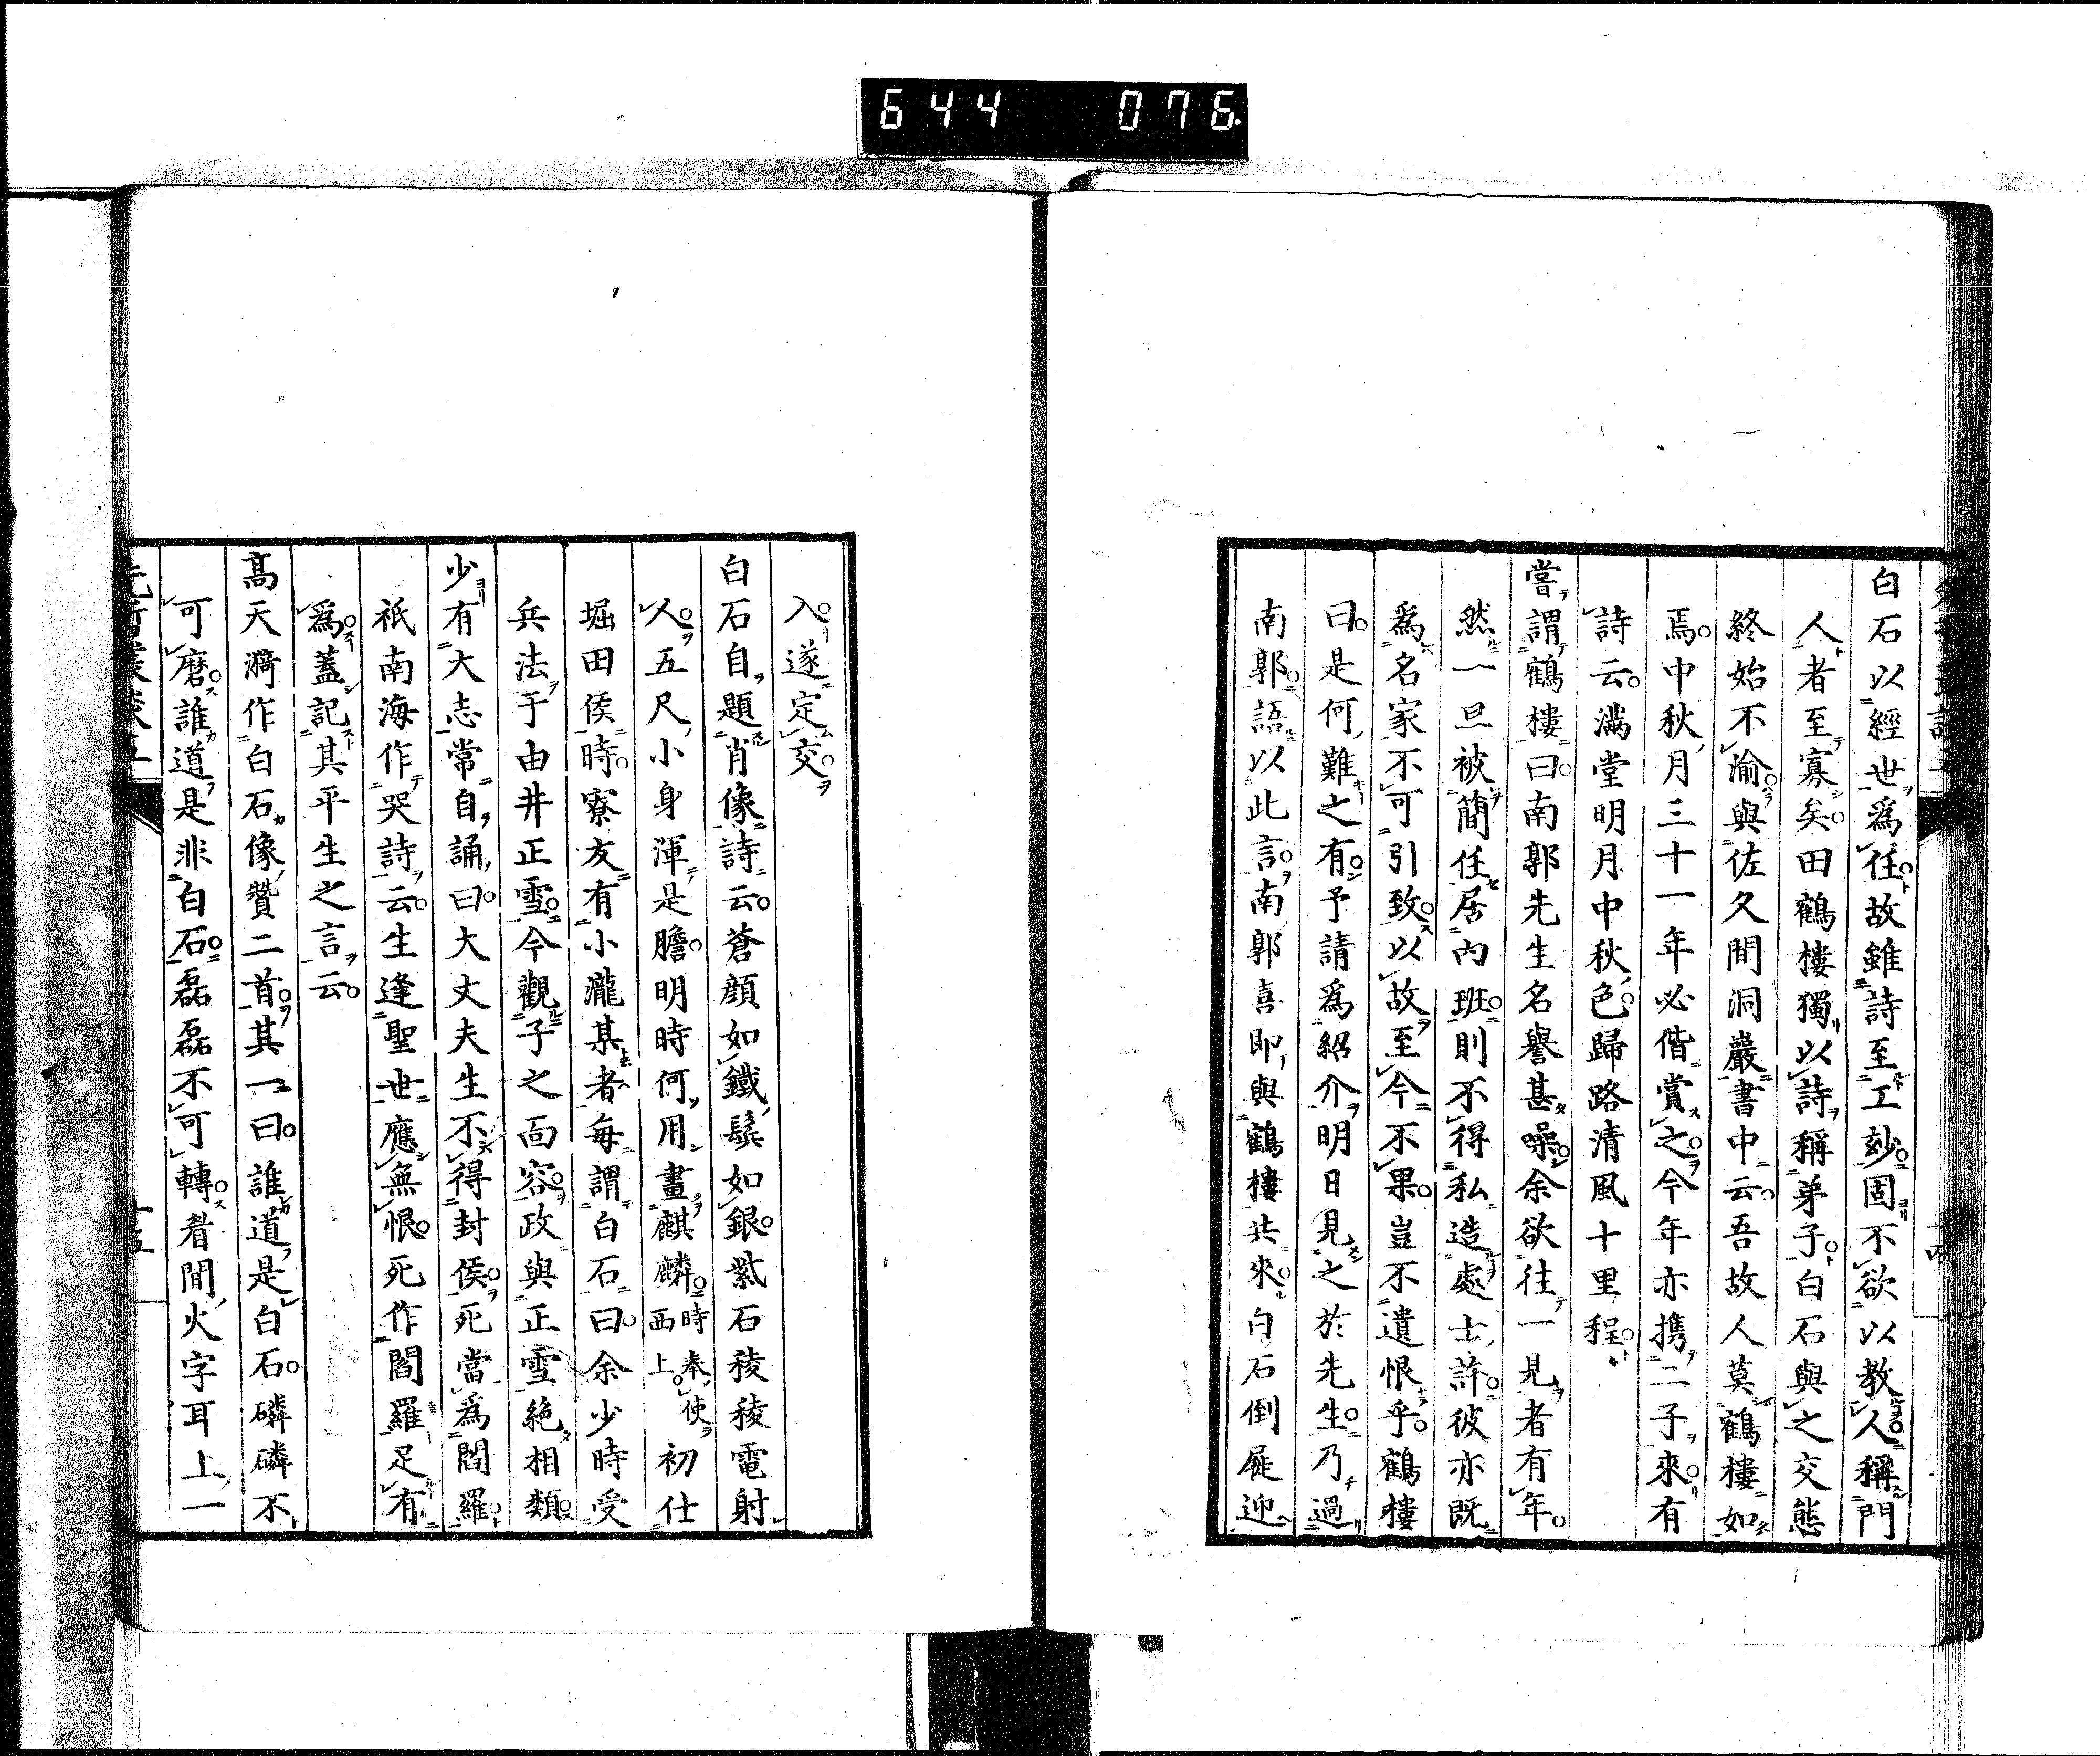 644 076
白石以經世爲任故雖詩至工玅固不欲以教人稱門
人者至寡矣田鶴樓獨以詩稱弟子白石與之交態
終始不渝與佐久間洞巖書中云吾故人莫鶴樓如
焉中秋月三十一年必偕賞之今年亦携二子來有
詩云滿堂明月中秋色歸路清風十里程
嘗謂鶴樓曰南郭先生名譽甚噪余欲往一見者有年
然一旦被簡任居内班則不得私造處士許彼亦既
爲名家不可引致以故至今不果豈不遺恨乎鶴樓
曰是何難之有予請爲紹介明日見之於先生乃過
南郭語以此言南郭喜即與鶴樓共來白石倒屣迎
入遂定交
白石自題肖像詩云蒼顔如鐵鬂如銀紫石稜稜電射
人五尺小身渾是膽明時何用畫麒麟時奉使西上初仕
堀田侯時寮友有小瀧某者每謂白石曰余少時受
兵法于由井正雪今觀子之面容政與正雪絶相類
少有大志常自誦曰大丈夫生不得封侯死當爲閻羅
祇南海作哭詩云生逢聖世應無恨死作閻羅足有
爲蓋記其平生之言云
高天漪作白石像贊二首其一曰誰道是白石磷磷不
可磨誰道是非白石磊磊不可轉看間火字耳上一